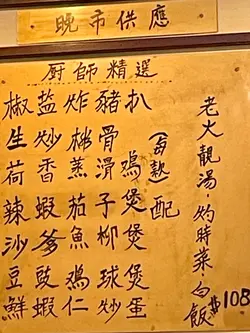 晚市供應
厨師精選
椒盐炸豬扒
生炒排骨
荷香蒸滑鸡
辣蝦茄子煲
沙爹魚柳煲
豆豉鸡球煲
鮮蝦仁炒蛋
(每款)配
老火靚湯·灼時菜·白飯 $108